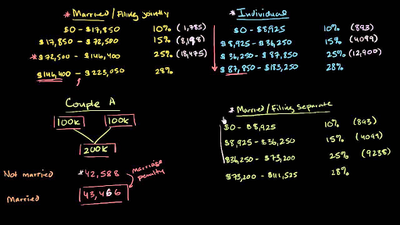 * Married / Filing jointly
$0 - $17,850 10% (1,785)
$17,850 - $72,500 15% (8,198)
* $72,500 - $146,400 25% (18,475)
$146,400 - $223,050 28%
* Individual
$0 - $8,925 10% (893)
$8,925 - $36,250 15% (4099)
$36,250 - $87,850 25% (12,900)
$87,850 - $183,250 28%
Couple A
100K 100K
200K
Not married *42,588
Married 43,466
marriage penalty
* Married / Filing Separate
$0 - $8,925 10% (893)
$8,925 - $36,250 15% (4099)
$36,250 - $73,200 25% (9238)
$73,200 - $111,525 28%